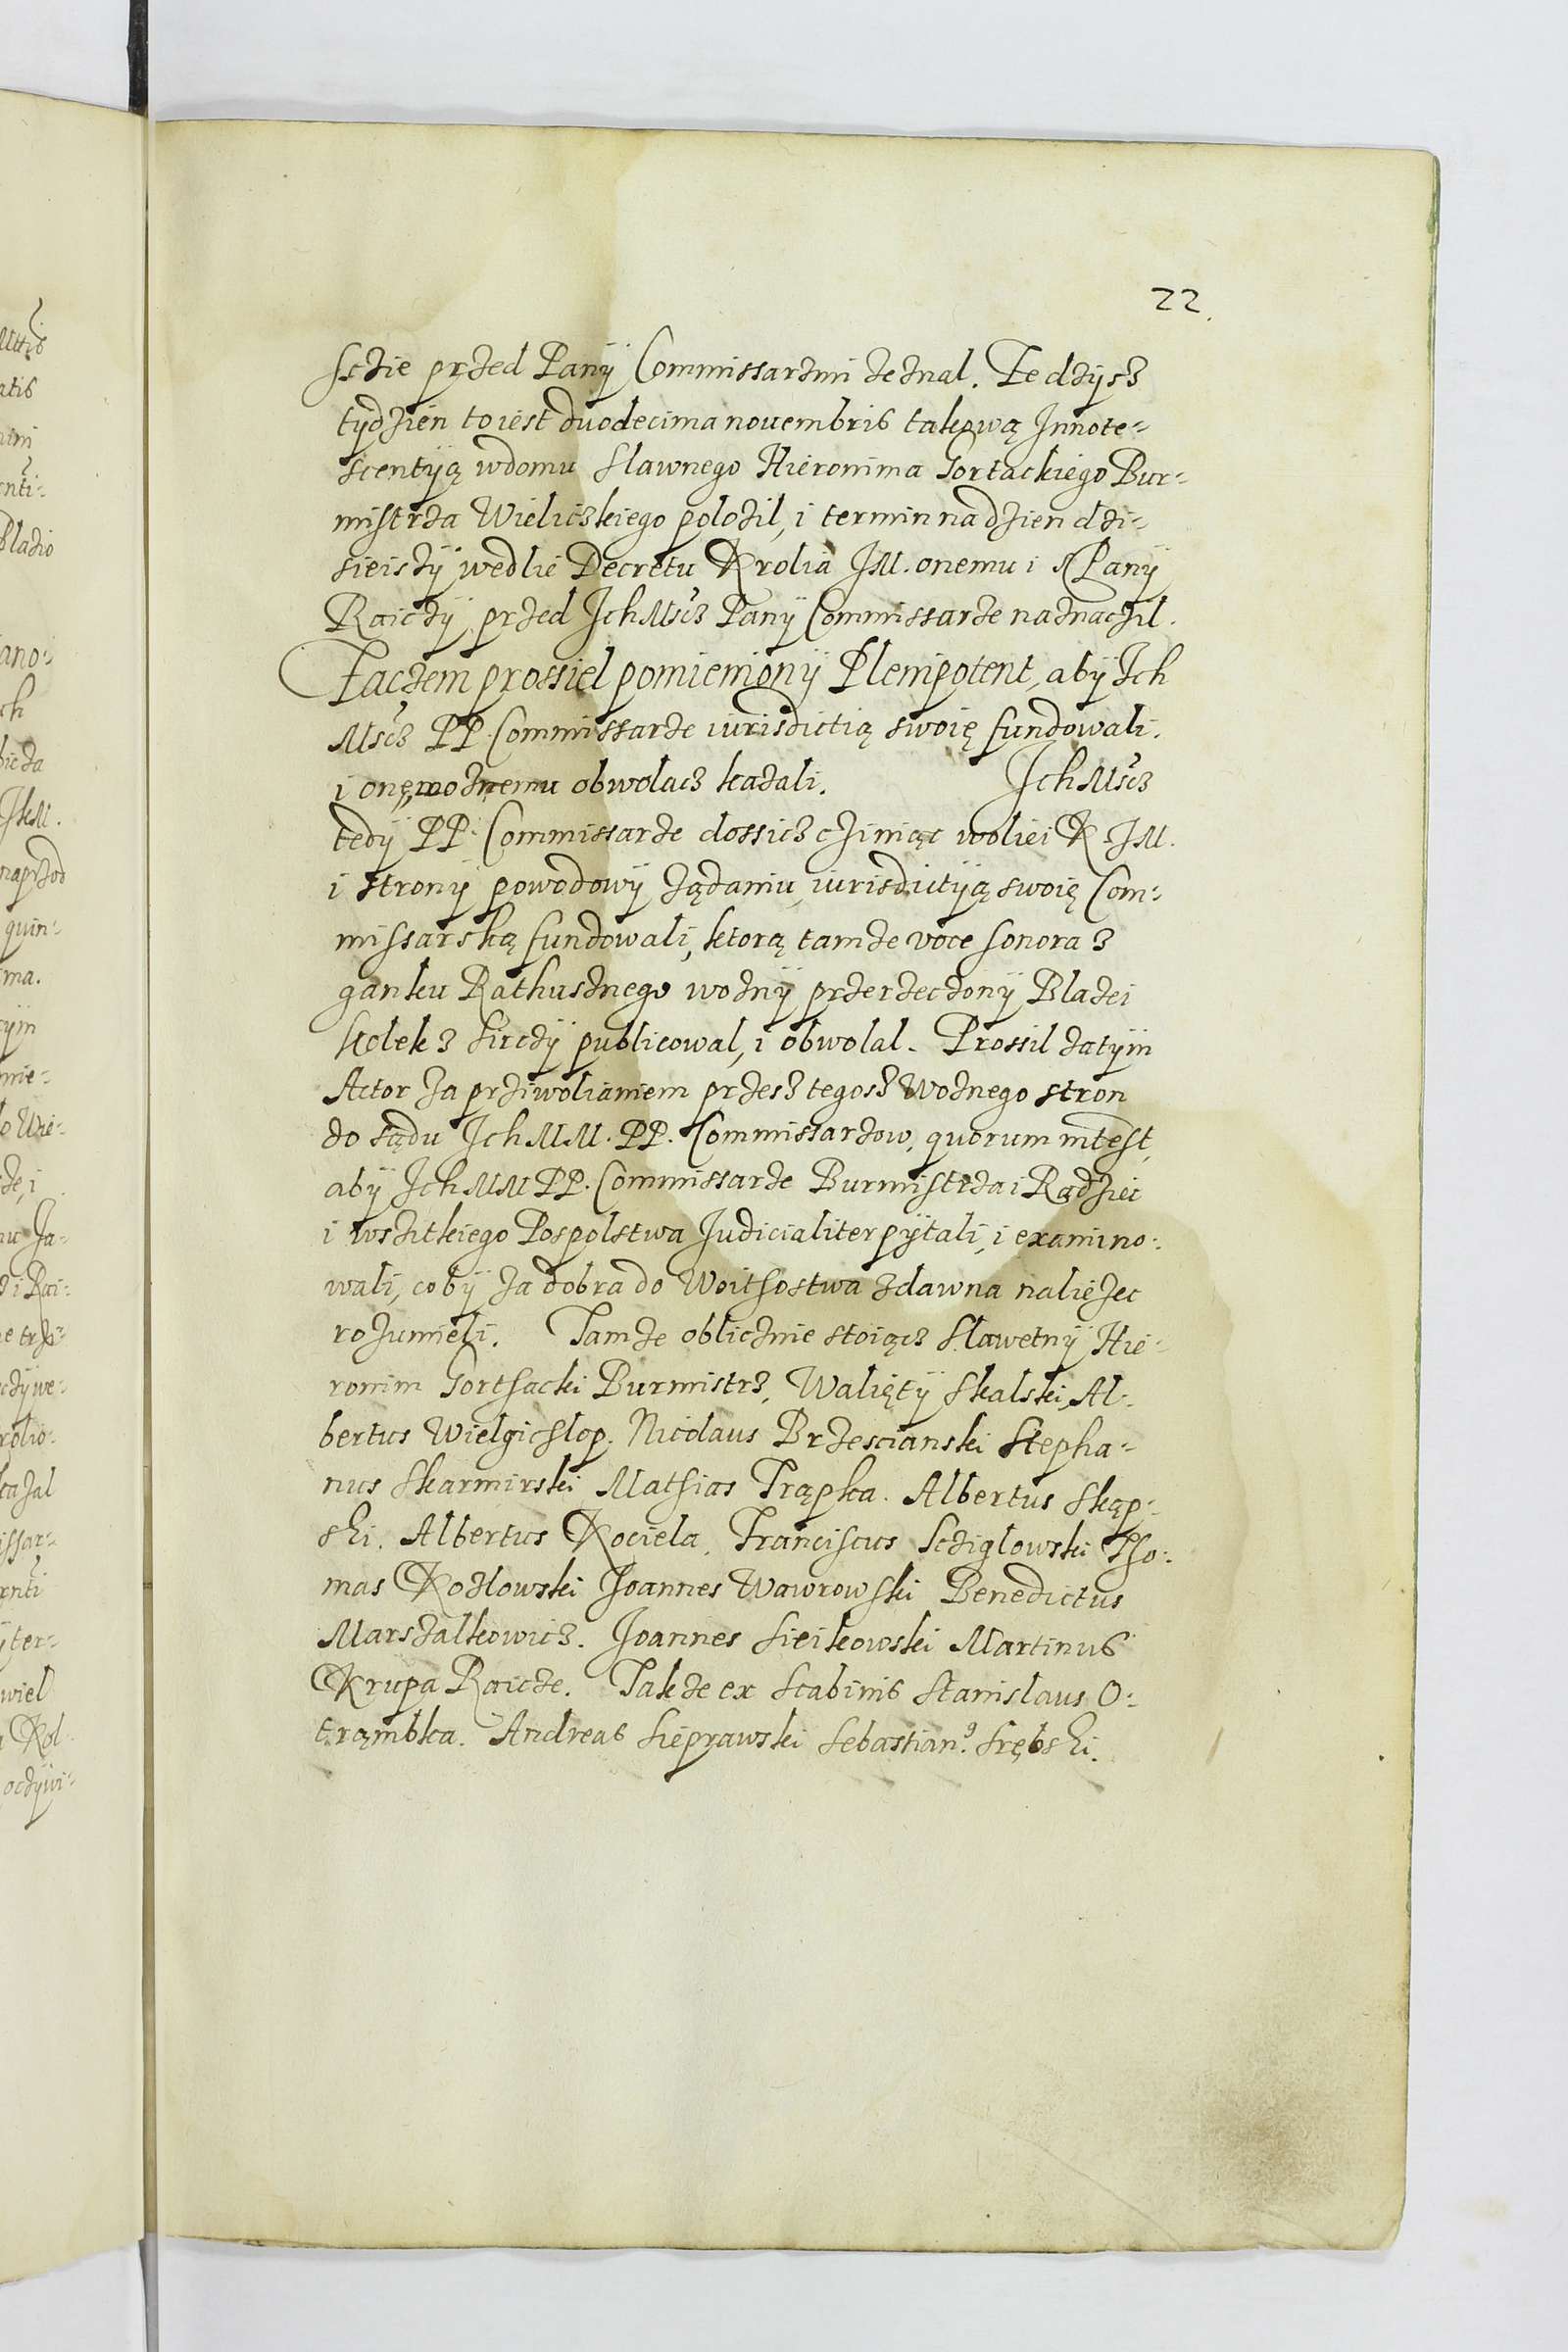 22.
sczie przed Pany Commissarzmi zeznal. Tedzysz
tydzien to iest duodecima nouembris takową Innote-
scentyią w domu slawnego Hieronima Gortackiego Bur-
mistrza Wieliczkiego polozil, i termin na dzien dzi-
sieiszy wedlie Decretu Krolia JM. onemu i Pany
Raiczy przed Ich Mscz Pany Commissarze naznaczil.
Zaczem prossiel pomieniony Plenipotent, aby Ich
Mscz PP. Commissarze iurisdictią swoię fundowali.
i onę woznemu obwolacz kazali. Ich Mscz
tedy PP. Commissarze dossicz cziniąc woliei K JM.
i strony powodowy ządaniu, iurisdictyią swoię Com-
missarską fundowali, ktorą tamze voce sonora z
ganku Rathusznego wozny przerzeczony Blazei
Kolek z Sirczy publicowal, i obwolal. Prossil zatym
Actor za prziwolianiem przesz tegosz Woznego stron
do sądu Ich MM. PP. Commissarzow, quorum intest,
aby Ich MM PP. Commissarze Burmistrza i Radziec
i wszitkiego Pospolstwa Judicialiter pytali, i examino-
wali, co by za dobra do Woithostwa zdawna naliezec
rozumieli. Tamze oblicznie stoiącz slawetny Hie-
ronim Gorthacki Burmistrz, Walięty Skalski, Al-
bertus Wielgichlop. Nicolaus Brzescianski Stepha-
nus Skarmirski Mathias Trąpka. Albertus Skąp-
ski. Albertus Kociela. Franciscus Scziglowski Tho-
mas Kozlowski Joannes Wawrowski Benedictus
Marszalkowicz. Joannes Sieikowski Martinus
Krupa Raicze. Takze ex Scabinis Stanislaus O-
trąmbka. Andreas Sieprawski Sebastian9 Srębski.